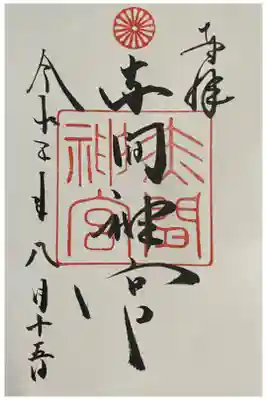 奉拝
赤間神宮
赤間
神宮
令和 年八月十五日